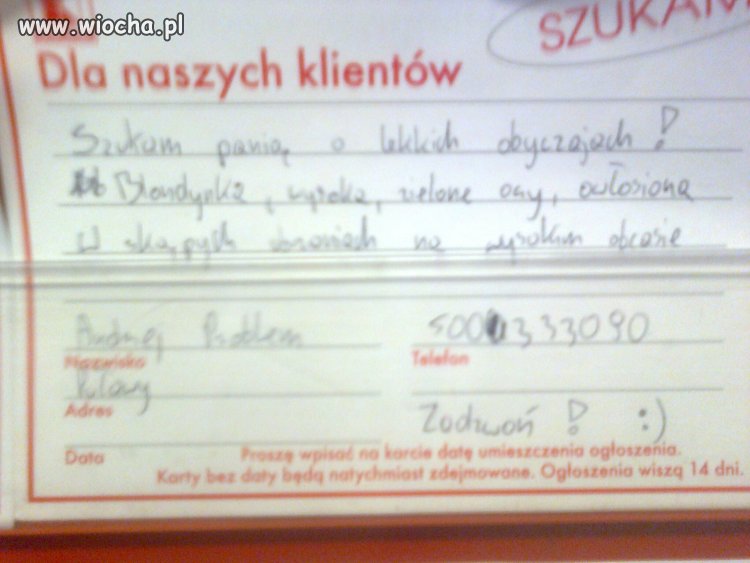 www.wiocha.pl
SZUKAM
Dla naszych klientów
Szukam panią o lekkich obyczajach!
Blondynka, wysoka, zielone oczy, owłosiona
W skąpych ubraniach na wysokim obcasie
Andrzej Problem 500 333090
Nazwisko Telefon
Puławy
Adres Zadzwoń! :)
Data Proszę wpisać na karcie datę umieszczenia ogłoszenia.
Karty bez daty będą natychmiast zdejmowane. Ogłoszenia wiszą 14 dni.